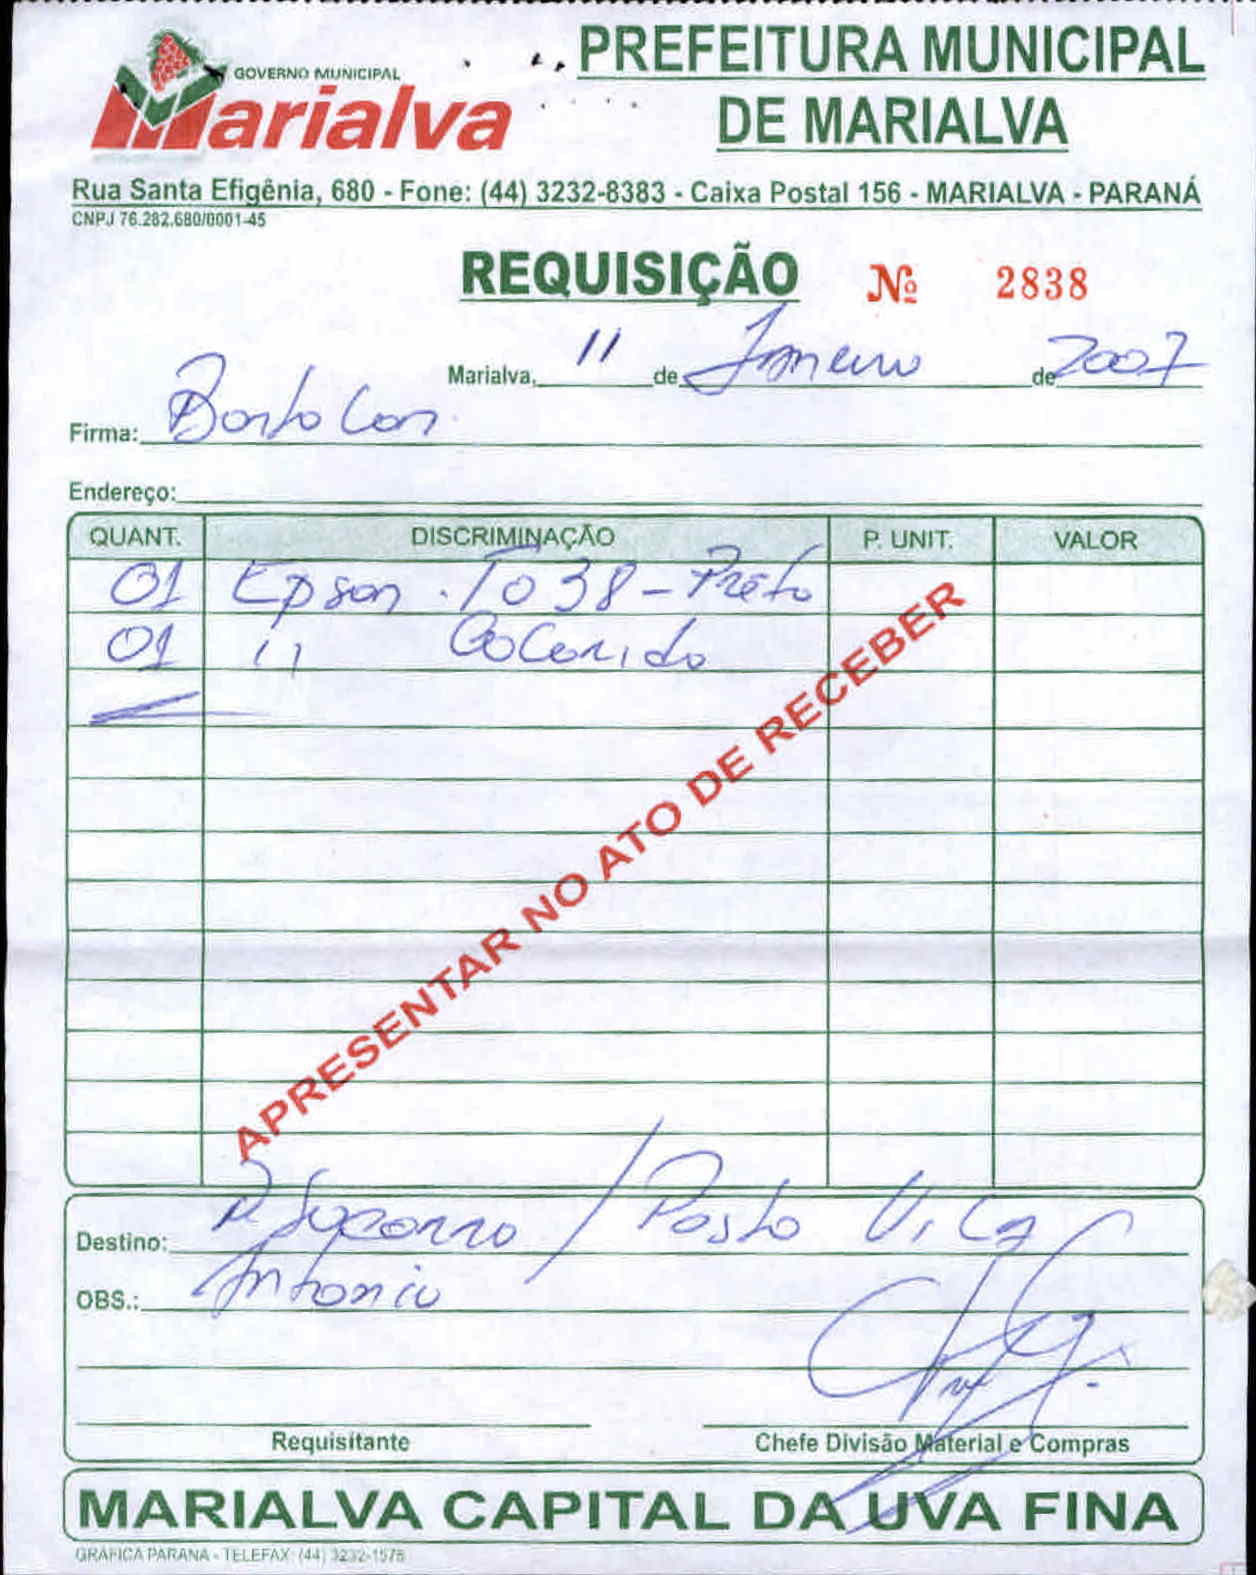 GOVERNO MUNICIPAL
Marialva
PREFEITURA MUNICIPAL
DE MARIALVA
Rua Santa Efigênia, 680 - Fone: (44) 3232-8383 - Caixa Postal 156 - MARIALVA - PARANÁ
CNPJ 76.282.680/0001-45
REQUISIÇÃO Nº 2838
Marialva, 11 de Janeiro de 2007
Firma:
Endereço:
QUANT. DISCRIMINAÇÃO P. UNIT. VALOR
01 Epson T038 - Preto
01 " Colorido
APRESENTAR NO ATO DE RECEBER
Destino: P. Socorro / Posto Vila
OBS.: Antonio
Requisitante Chefe Divisão Material e Compras
MARIALVA CAPITAL DA UVA FINA
GRÁFICA PARANÁ - TELEFAX: (44) 3232-1576